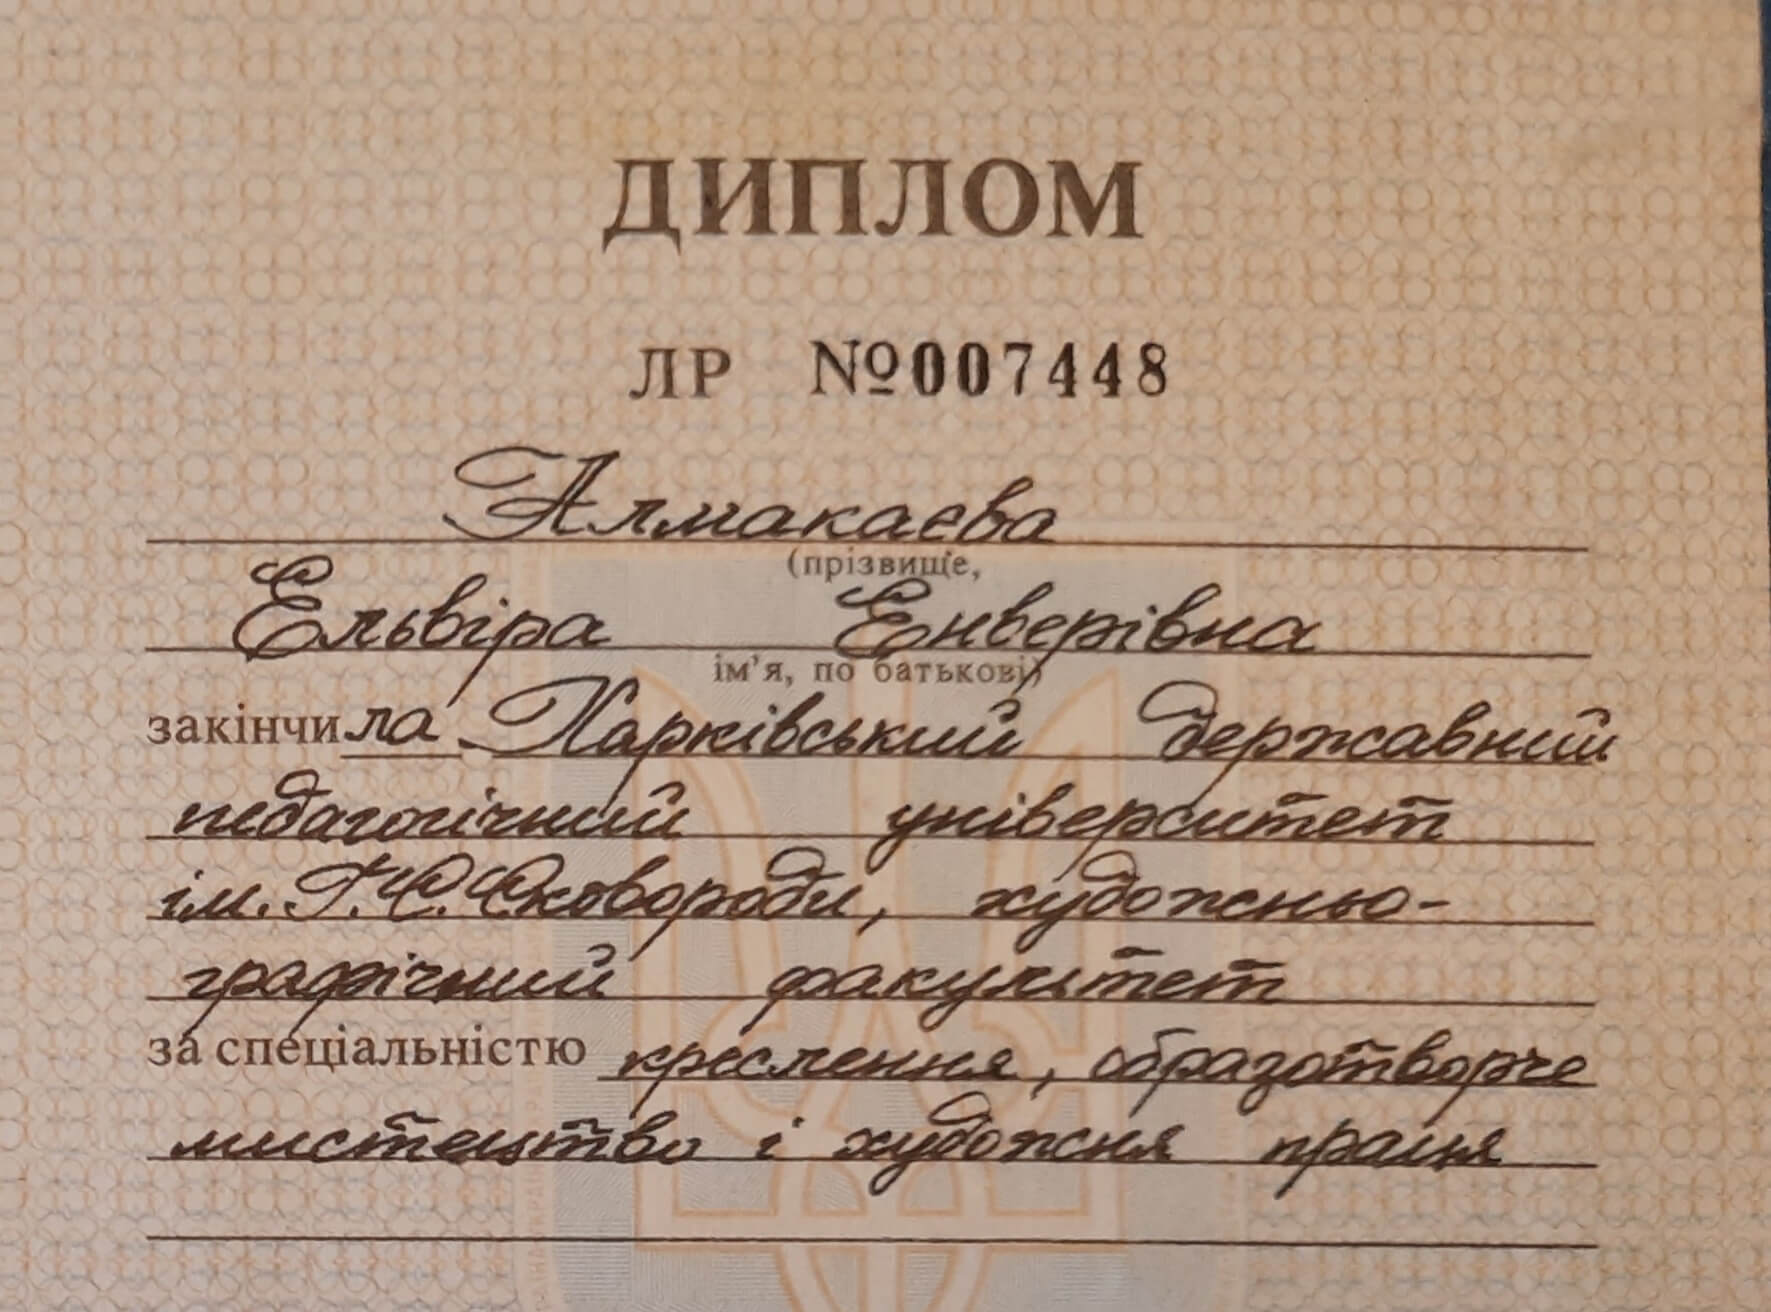 ДИПЛОМ
ЛР №007448
Алмакаєва
(прізвище,
Ельвіра Енверівна
ім'я, по батькові)
закінчила Харківський державний
педагогічний університет
ім. Г.С. Сковороди, художньо-
графічний факультет
за спеціальністю креслення, образотворче
мистецтво і художня праця